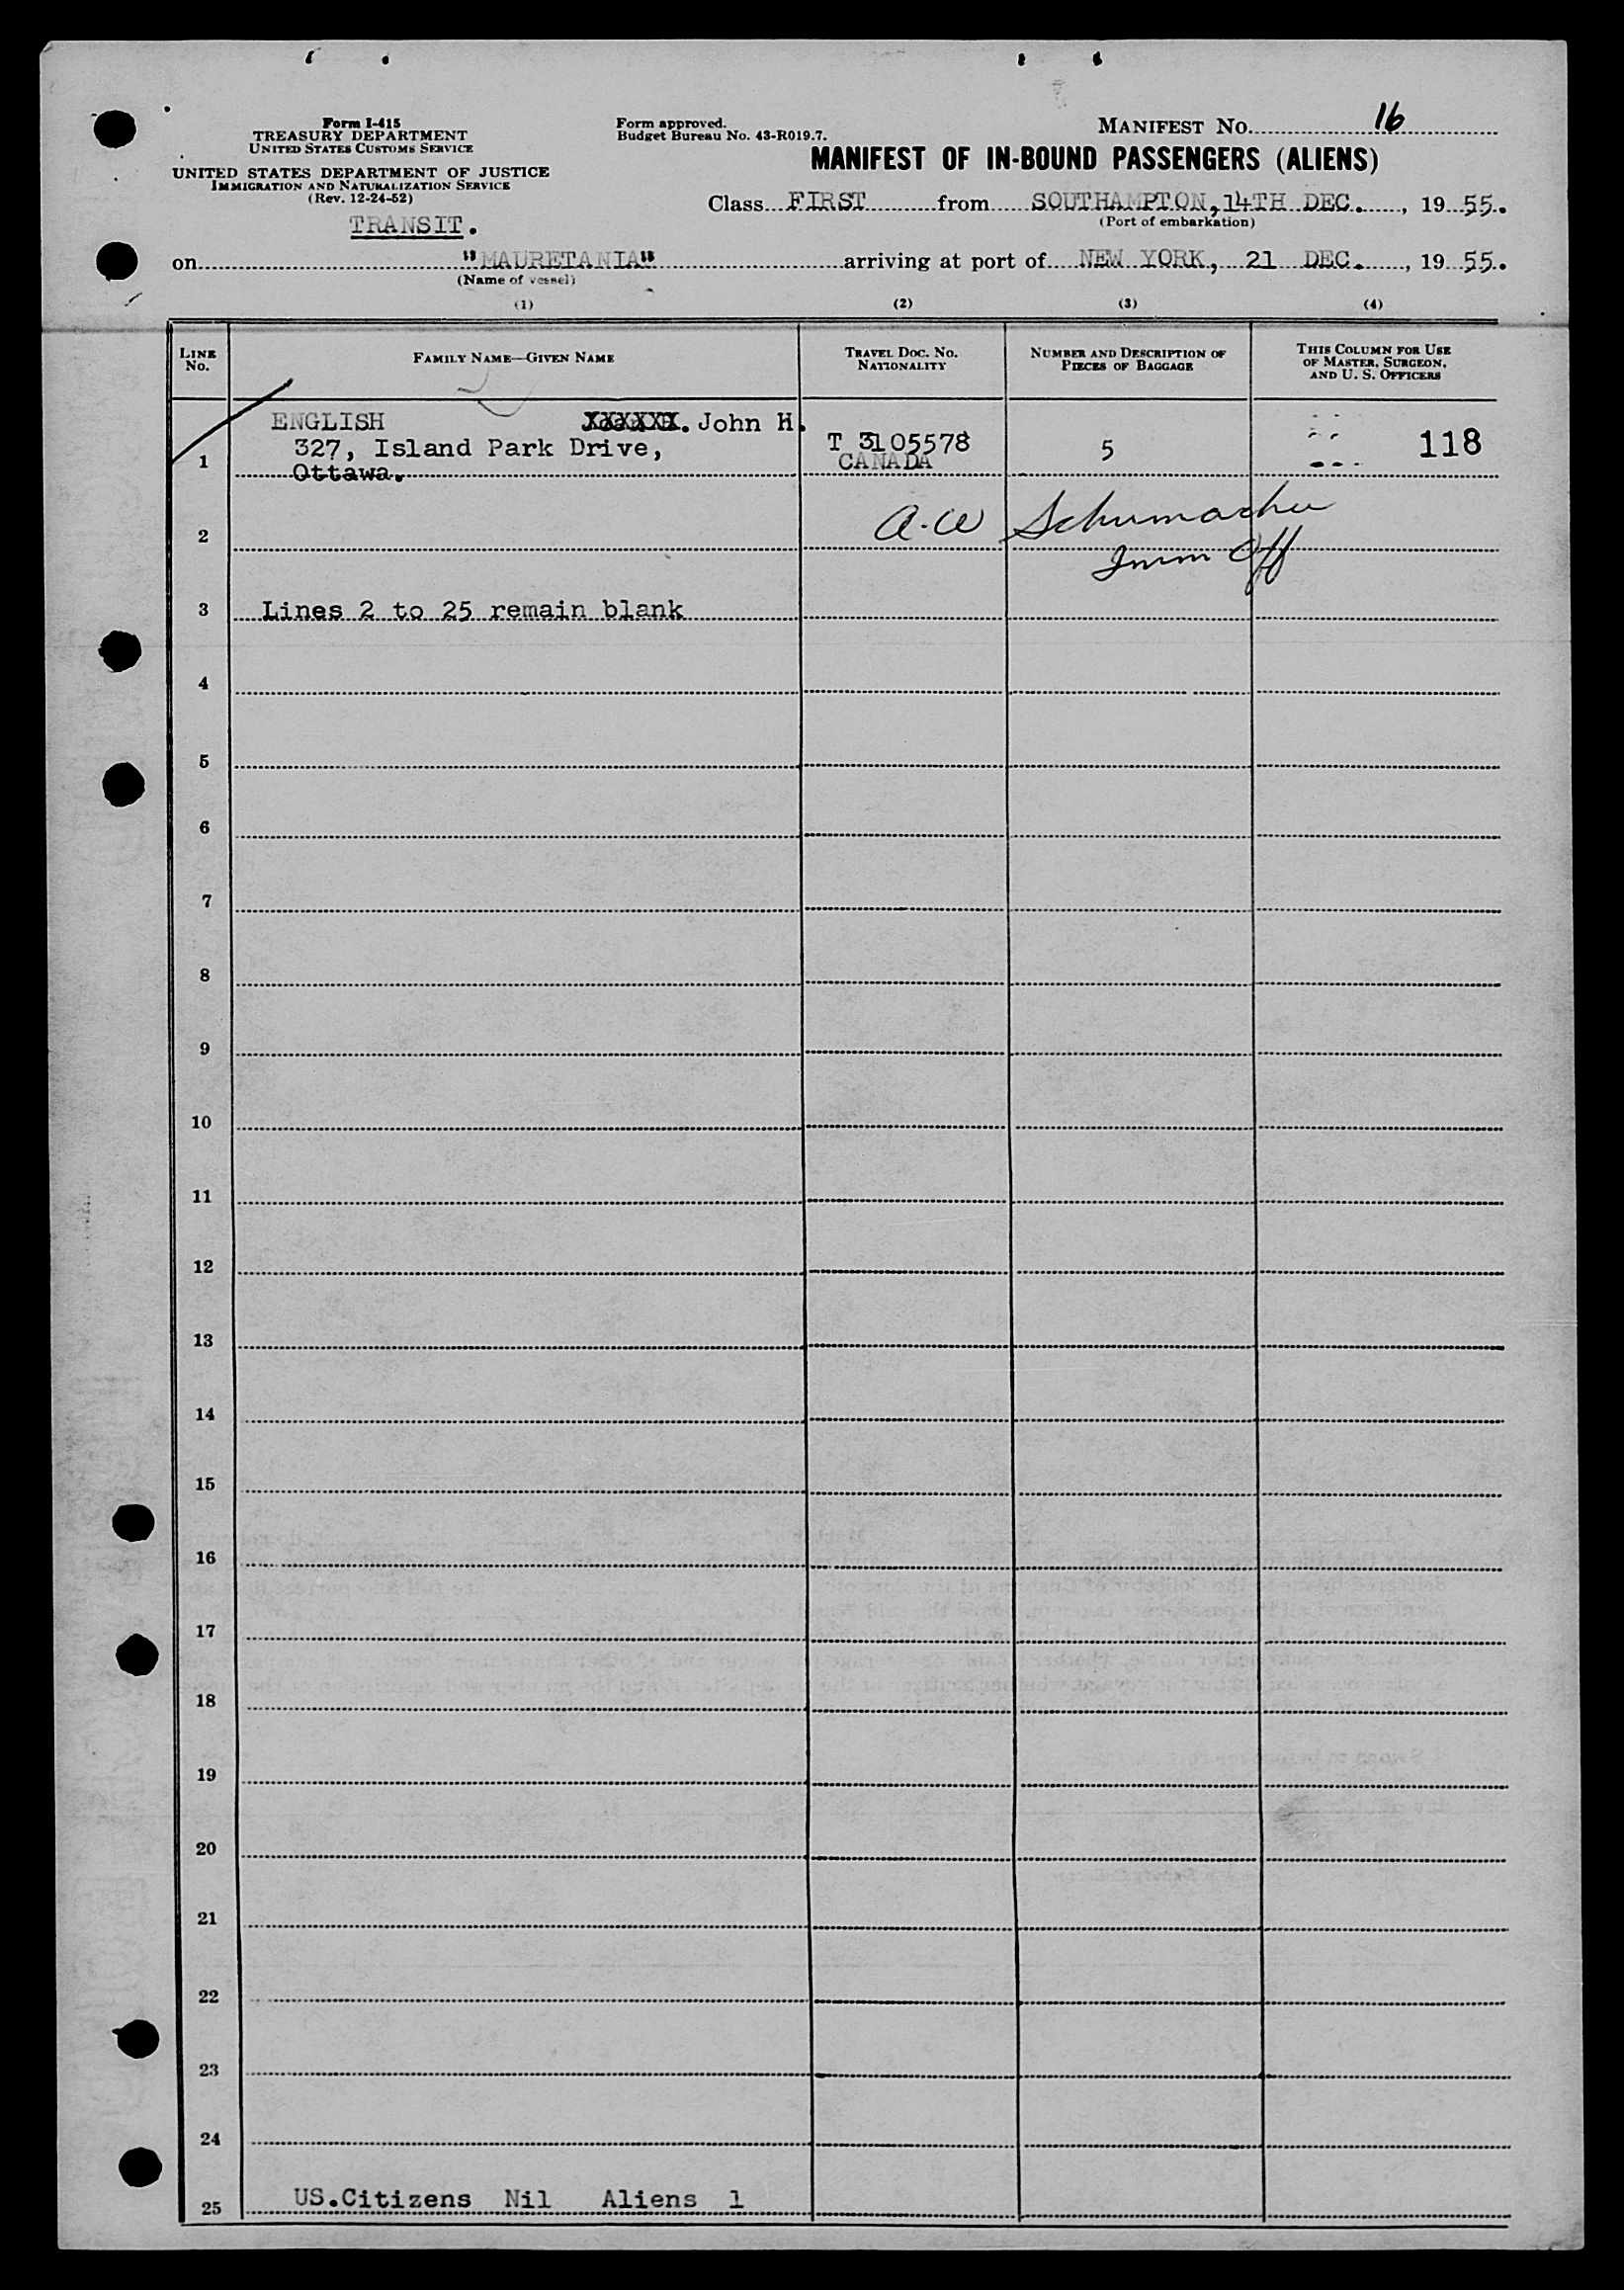 Form I-415
TREASURY DEPARTMENT
UNITED STATES CUSTOMS SERVICE
UNITED STATES DEPARTMENT OF JUSTICE
IMMIGRATION AND NATURALIZATION SERVICE
(Rev. 12-24-52)
TRANSIT.
Form approved.
Budget Bureau No. 43-R019.7.
MANIFEST NO. 16
MANIFEST OF IN-BOUND PASSENGERS (ALIENS)
Class FIRST from SOUTHAMPTON, 14TH DEC., 19 55.
(Port of embarkation)
on "MAURETANIA" arriving at port of NEW YORK, 21 DEC., 19 55.
(Name of vessel)
(1) (2) (3) (4)
LINE NO.
FAMILY NAME—GIVEN NAME
TRAVEL DOC. NO.
NATIONALITY
NUMBER AND DESCRIPTION OF
PIECES OF BAGGAGE
THIS COLUMN FOR USE
OF MASTER, SURGEON,
AND U. S. OFFICERS
ENGLISH John H.
327, Island Park Drive,
Ottawa.
1
T 3105578
CANADA
5
118
2
A. W Schumacher
Imm Off
3 Lines 2 to 25 remain blank
4
5
6
7
8
9
10
11
12
13
14
15
16
17
18
19
20
21
22
23
24
25 US.Citizens Nil Aliens 1